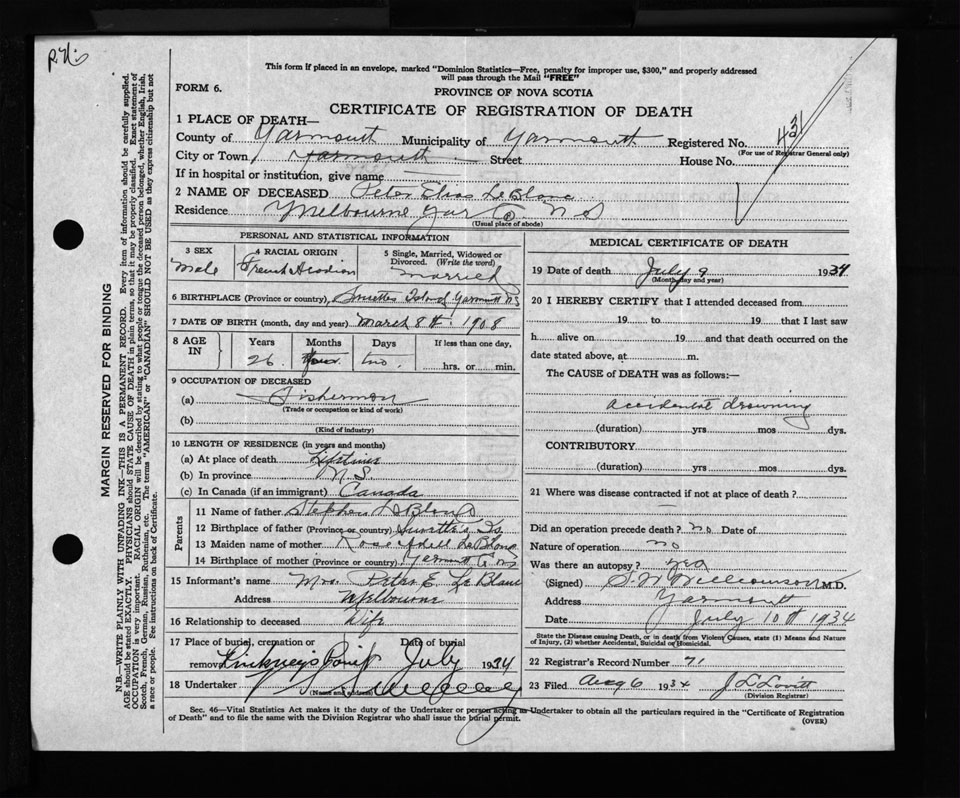 This form if placed in an envelope, marked "Dominion Statistics—Free, penalty for improper use, $300," and properly addressed
will pass through the Mail "FREE"
FORM 6.
PROVINCE OF NOVA SCOTIA
CERTIFICATE OF REGISTRATION OF DEATH
1 PLACE OF DEATH—
County of Yarmouth Municipality of Yarmouth Registered No. 431
(For use of Registrar General only)
City or Town Yarmouth Street House No.
If in hospital or institution, give name
2 NAME OF DECEASED Peter Elias LeBlanc
Residence Melbourne Yar Co. N S
(Usual place of abode)
PERSONAL AND STATISTICAL INFORMATION
3 SEX
Male
4 RACIAL ORIGIN
French Acadian
5 Single, Married, Widowed or
Divorced. (Write the word)
Married
6 BIRTHPLACE (Province or country), Surettes Island Yarmouth NS
7 DATE OF BIRTH (month, day and year) March 8th 1908
8 AGE IN
Years Months Days If less than one day,
26 two hrs. or min.
9 OCCUPATION OF DECEASED
(a) Fisherman
(Trade or occupation or kind of work)
(b)
(Kind of industry)
10 LENGTH OF RESIDENCE (in years and months)
(a) At place of death Lifetime
(b) In province N.S.
(c) In Canada (if an immigrant) Canada
Parents
11 Name of father Stephen LeBlanc
12 Birthplace of father (Province or country) Surette's Is.
13 Maiden name of mother Rose Adell LeBlanc
14 Birthplace of mother (Province or country) Yarmouth Co NS
15 Informant's name Mrs. Peter E. LeBlanc
Address Melbourne
16 Relationship to deceased Wife
17 Place of burial, cremation or Date of burial
removal Pinkney's Point July 1934
18 Undertaker
(Name and address)
MEDICAL CERTIFICATE OF DEATH
19 Date of death July 9 1934
(Month, day and year)
20 I HEREBY CERTIFY that I attended deceased from
19 to 19 that I last saw
h alive on 19 and that death occurred on the
date stated above, at m.
The CAUSE OF DEATH was as follows:—
accidental drowning
(duration) yrs mos dys.
CONTRIBUTORY
(duration) yrs mos dys.
21 Where was disease contracted if not at place of death?
Did an operation precede death? no Date of
Nature of operation no
Was there an autopsy? yes
(Signed) S. W. Williamson M.D.
Address Yarmouth
Date July 10th 1934
State the Disease causing Death, or in death from Violent Causes, state (1) Means and Nature
of Injury, (2) whether Accidental, Suicidal or Homicidal.
22 Registrar's Record Number 71
23 Filed Aug 6 1934 J. L. Lovitt
(Division Registrar)
Sec. 46—Vital Statistics Act makes it the duty of the Undertaker or person acting as Undertaker to obtain all the particulars required in the "Certificate of Registration
of Death" and to file the same with the Division Registrar who shall issue the burial permit. (OVER)
MARGIN RESERVED FOR BINDING
N.B.—WRITE PLAINLY WITH UNFADING INK—THIS IS A PERMANENT RECORD. Every item of information should be carefully supplied.
AGE should be stated EXACTLY. PHYSICIANS should STATE CAUSE OF DEATH in plain terms, so that it may be properly classified. Exact statement of
OCCUPATION is very important. RACIAL ORIGIN will be described by stating to what people or tongue the deceased person belonged, whether English, Irish,
Scotch, French, German, Russian, Ruthenian, etc. The terms "AMERICAN" or "CANADIAN" SHOULD NOT BE USED as they express citizenship but not
a race or people. See instructions on back of Certificate.